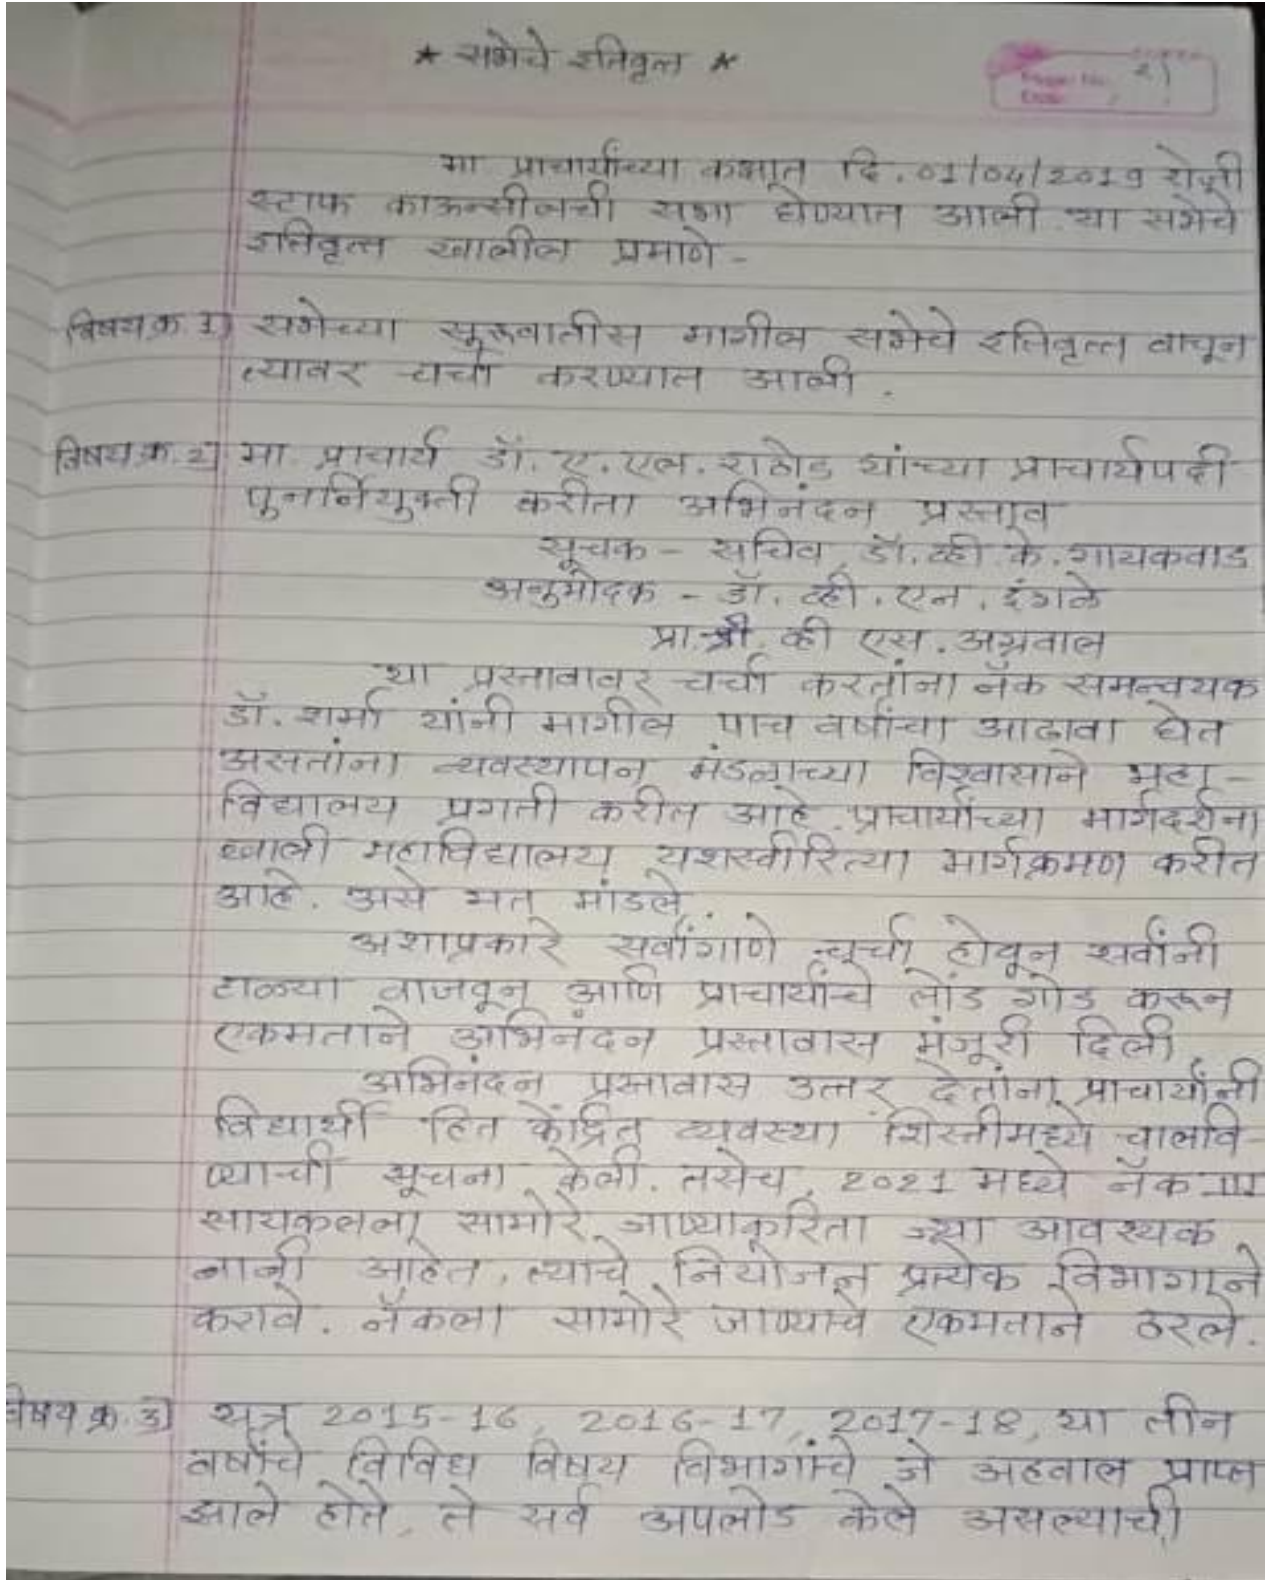 ★ सभेचे इतिवृत्त ★
Page No.
Date
मा प्राचार्यांच्या कक्षात दि. 01/04/2019 रोजी
स्टाफ काऊन्सीलची सभा घेण्यात आली. या सभेचे
इतिवृत्त खालील प्रमाणे -
विषय क्र. 1) सभेच्या सुरूवातीस मागील सभेचे इतिवृत्त वाचून
त्यावर चर्चा करण्यात आली.
विषय क्र. 2) मा. प्राचार्य डॉ. ए. एल. राठोड यांच्या प्राचार्यपदी
पुनर्नियुक्ती करीता अभिनंदन प्रस्ताव
सूचक - सचिव, डॉ. व्ही. के. गायकवाड
अनुमोदक - डॉ. व्ही. एन. इंगळे
प्रा. श्री. व्ही एस. अग्रवाल
या प्रस्तावावर चर्चा करतांना नॅक समन्वयक
डॉ. शर्मा यांनी मागील पाच वर्षांचा आढावा घेत
असतांना व्यवस्थापन मंडळाच्या विश्वासाने महा-
विद्यालय प्रगती करीत आहे. प्राचार्यांच्या मार्गदर्शना
खाली महाविद्यालय यशस्वीरित्या मार्गक्रमण करीत
आहे. असे मत मांडले.
अशाप्रकारे सर्वांगाणे चर्चा होवून सर्वांनी
टाळ्या वाजवून आणि प्राचार्यांचे तोंड गोड करून
एकमताने अभिनंदन प्रस्तावास मंजूरी दिली
अभिनंदन प्रस्तावास उत्तर देतांना प्राचार्यांनी
विद्यार्थी हित केंद्रित व्यवस्था शिस्तीमध्ये चालवि-
ण्याची सूचना केली. तसेच, 2021 मध्ये नॅक III
सायकलला सामोरे जाण्याकरिता ज्या आवश्यक
बाबी आहेत, त्याचे नियोजन प्रत्येक विभागाने
करावे. नॅकला सामोरे जाण्याचे एकमताने ठरले.
विषय क्र. 3) सत्र 2015-16, 2016-17, 2017-18, या तीन
वर्षांचे विविध विषय विभागांचे जे अहवाल प्राप्त
झाले होते, ते सर्व अपलोड केले असल्याची